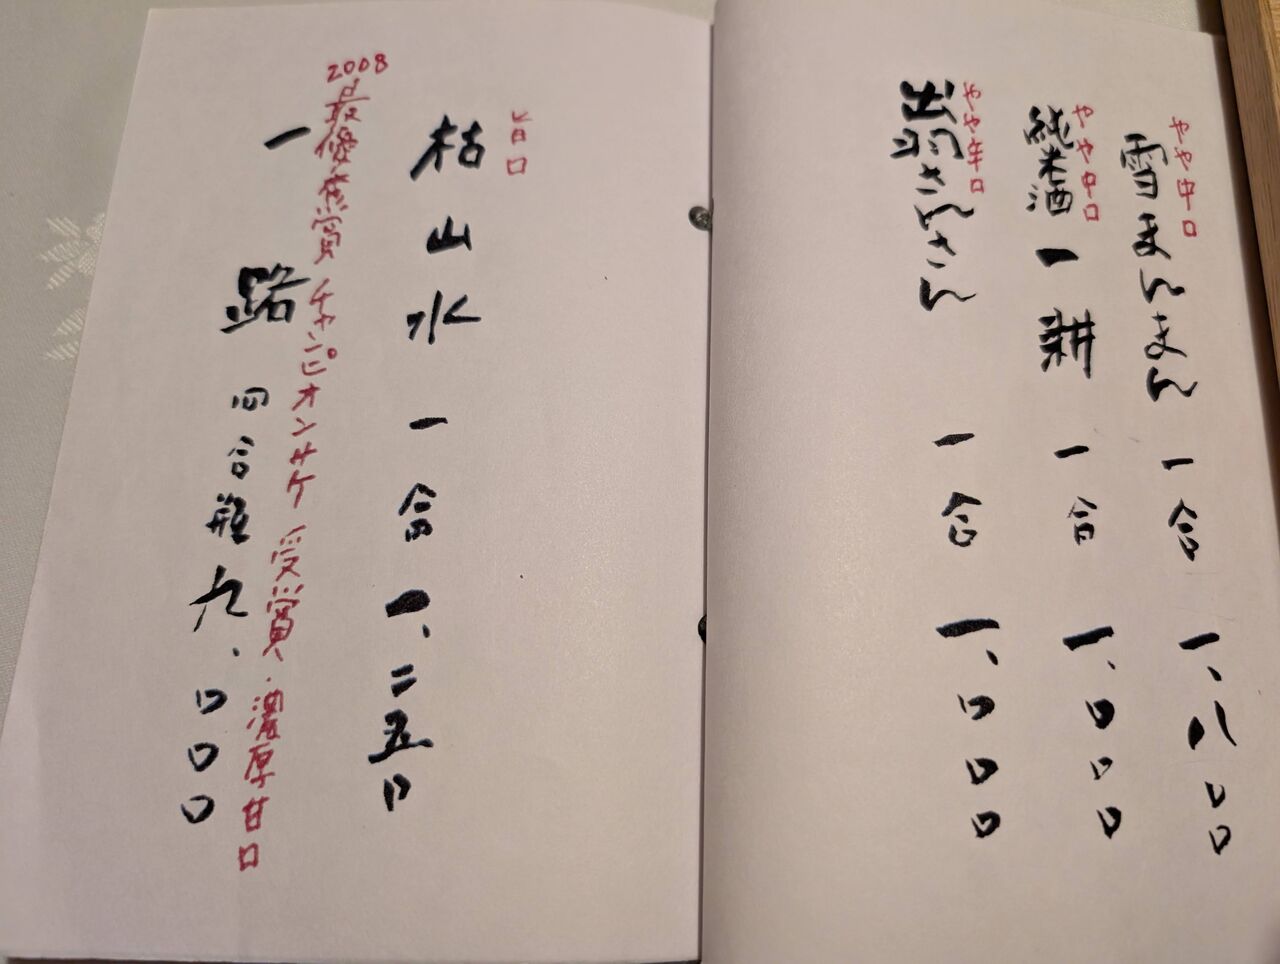 やや中口
雪まんまん 一合 一、八〇〇
やや中口
純米酒 一耕 一合 一、〇〇〇
やや辛口
出羽さんさん 一合 一、〇〇〇
旨口
枯山水 一合 一、二五〇
2008最優秀賞 チャンピオンサケ 受賞、濃厚甘口
一路 四合瓶 九、〇〇〇